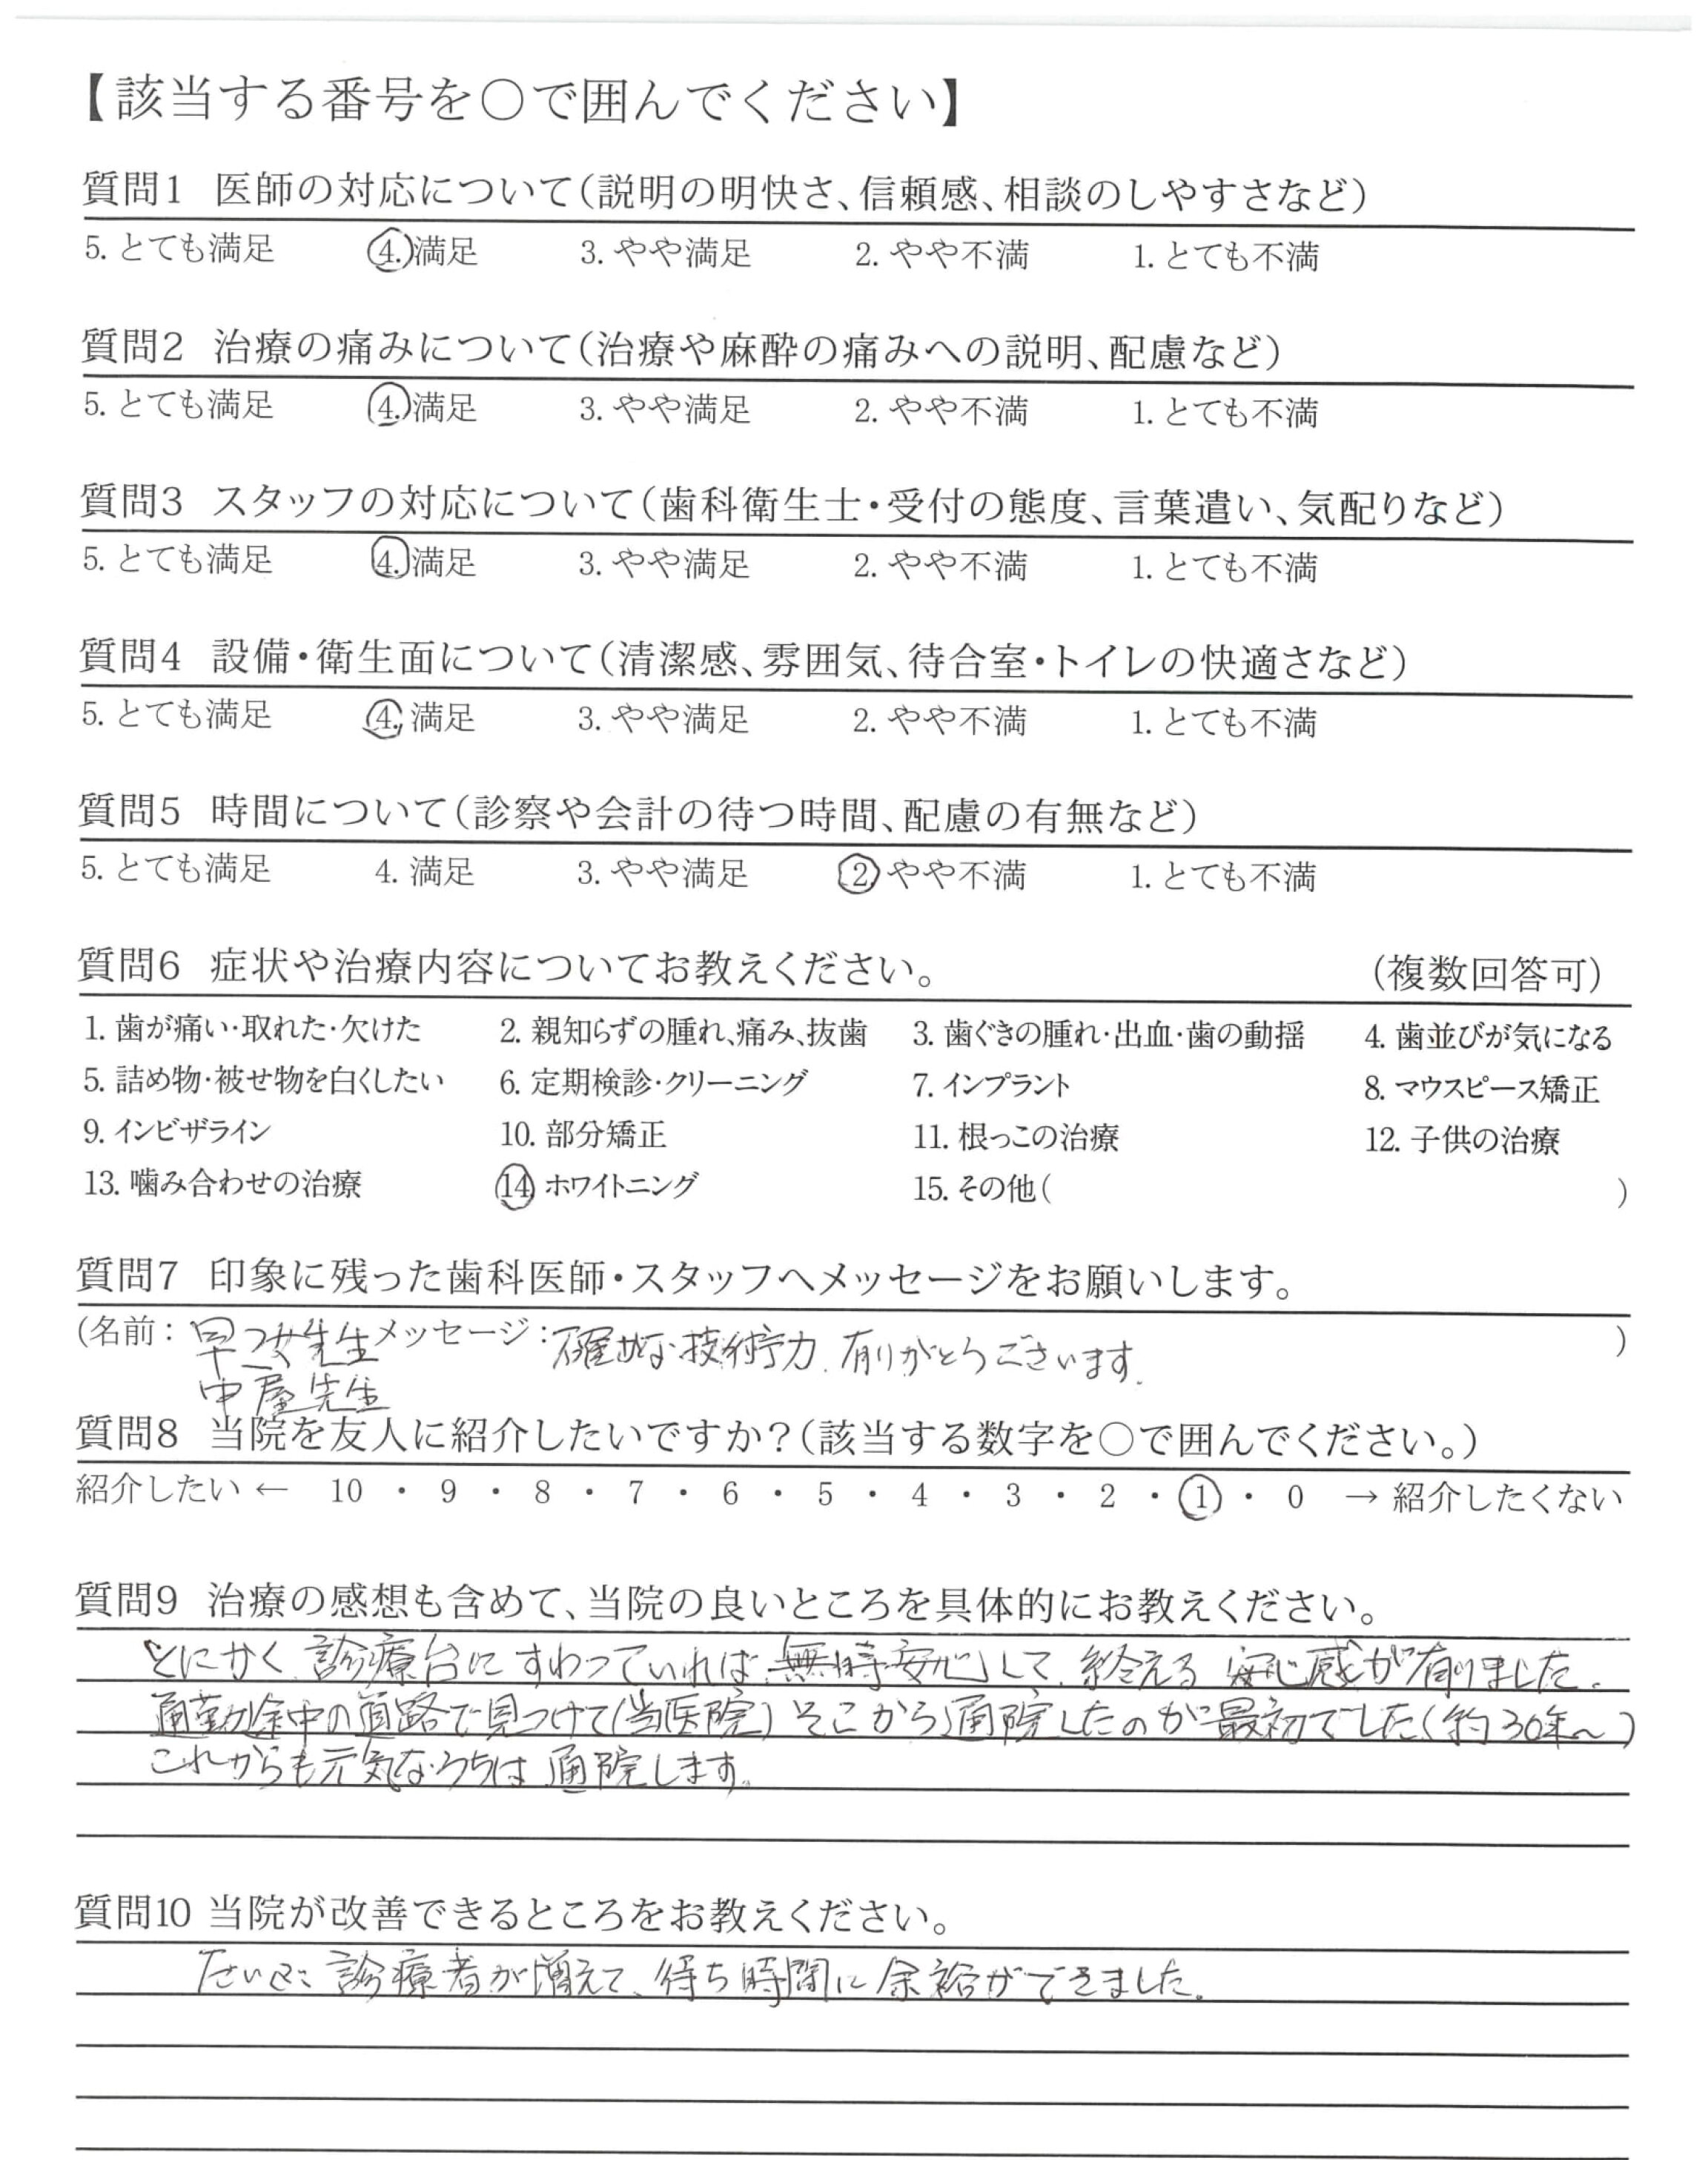 【該当する番号を○で囲んでください】
質問1 医師の対応について(説明の明快さ、信頼感、相談のしやすさなど)
5. とても満足 4. 満足 3. やや満足 2. やや不満 1. とても不満
質問2 治療の痛みについて(治療や麻酔の痛みへの説明、配慮など)
5. とても満足 4. 満足 3. やや満足 2. やや不満 1. とても不満
質問3 スタッフの対応について(歯科衛生士・受付の態度、言葉遣い、気配りなど)
5. とても満足 4. 満足 3. やや満足 2. やや不満 1. とても不満
質問4 設備・衛生面について(清潔感、雰囲気、待合室・トイレの快適さなど)
5. とても満足 4. 満足 3. やや満足 2. やや不満 1. とても不満
質問5 時間について(診察や会計の待つ時間、配慮の有無など)
5. とても満足 4. 満足 3. やや満足 2. やや不満 1. とても不満
質問6 症状や治療内容についてお教えください。 (複数回答可)
1. 歯が痛い・取れた・欠けた 2. 親知らずの腫れ、痛み、抜歯 3. 歯ぐきの腫れ・出血・歯の動揺 4. 歯並びが気になる
5. 詰め物・被せ物を白くしたい 6. 定期検診・クリーニング 7. インプラント 8. マウスピース矯正
9. インビザライン 10. 部分矯正 11. 根っこの治療 12. 子供の治療
13. 噛み合わせの治療 14 ホワイトニング 15. その他( )
質問7 印象に残った歯科医師・スタッフへメッセージをお願いします。
(名前: 早乙女先生 メッセージ: 確かな技術力、有りがとうございます。 )
中屋先生
質問8 当院を友人に紹介したいですか?(該当する数字を○で囲んでください。)
紹介したい ← 10 ・ 9 ・ 8 ・ 7 ・ 6 ・ 5 ・ 4 ・ 3 ・ 2 ・ 1 ・ 0 → 紹介したくない
質問9 治療の感想も含めて、当院の良いところを具体的にお教えください。
とにかく、診療台にすわっていれば、無時安心して、終える 安心感が有りました。
通勤途中の道路で見つけて(当医院)そこから通院したのが最初でした(約30年〜)
これからも元気なうちは 通院します。
質問10 当院が改善できるところをお教えください。
診療者が増えて、待ち時間に余裕ができました。